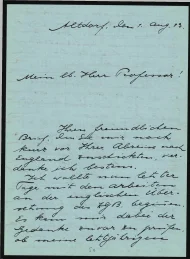 Altdorf, den 1. Aug. 13.
Mein l. Herr Professor!
Ihren freundlichen
Brief, den Sie mir noch
kurz vor Ihrer Abreise nach
England zuschickten, ver-
danke ich bestens.
Ich wollte nun letzter
Tage mit den Arbeiten
an der englischen Über-
setzung des ZGB beginnen.
Es kam mir dabei der
Gedanke zu prüfen
ob meine letztjährigen